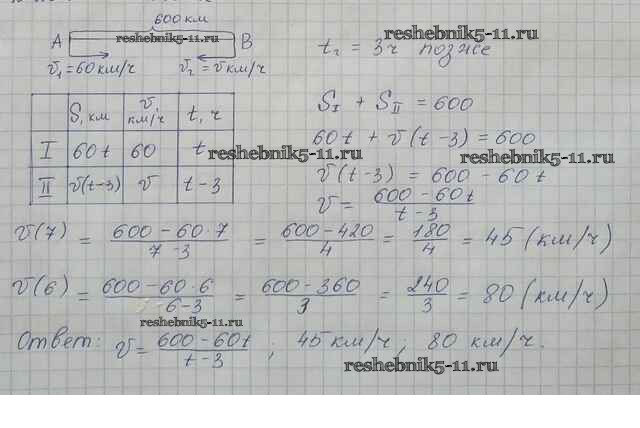 600 км
A reshebnik5-11.ru B
v₁ = 60 км/ч v₂ = v км/ч
t₂ = 3ч позже
reshebnik5-11.ru
S, км v, км/ч t, ч
I 60t 60 t
II v(t-3) v t-3
S_I + S_II = 600
60t + v(t-3) = 600
reshebnik5-11.ru
reshebnik5-11.ru
v(t-3) = 600 - 60t
v = (600 - 60t)/(t-3)
v(7) = (600 - 60·7)/(7-3) = (600-420)/4 = 180/4 = 45 (км/ч)
v(6) = (600 - 60·6)/(6-3) = (600-360)/3 = 240/3 = 80 (км/ч)
reshebnik5-11.ru
Ответ: v = (600-60t)/(t-3); 45 км/ч; 80 км/ч.
reshebnik5-11.ru